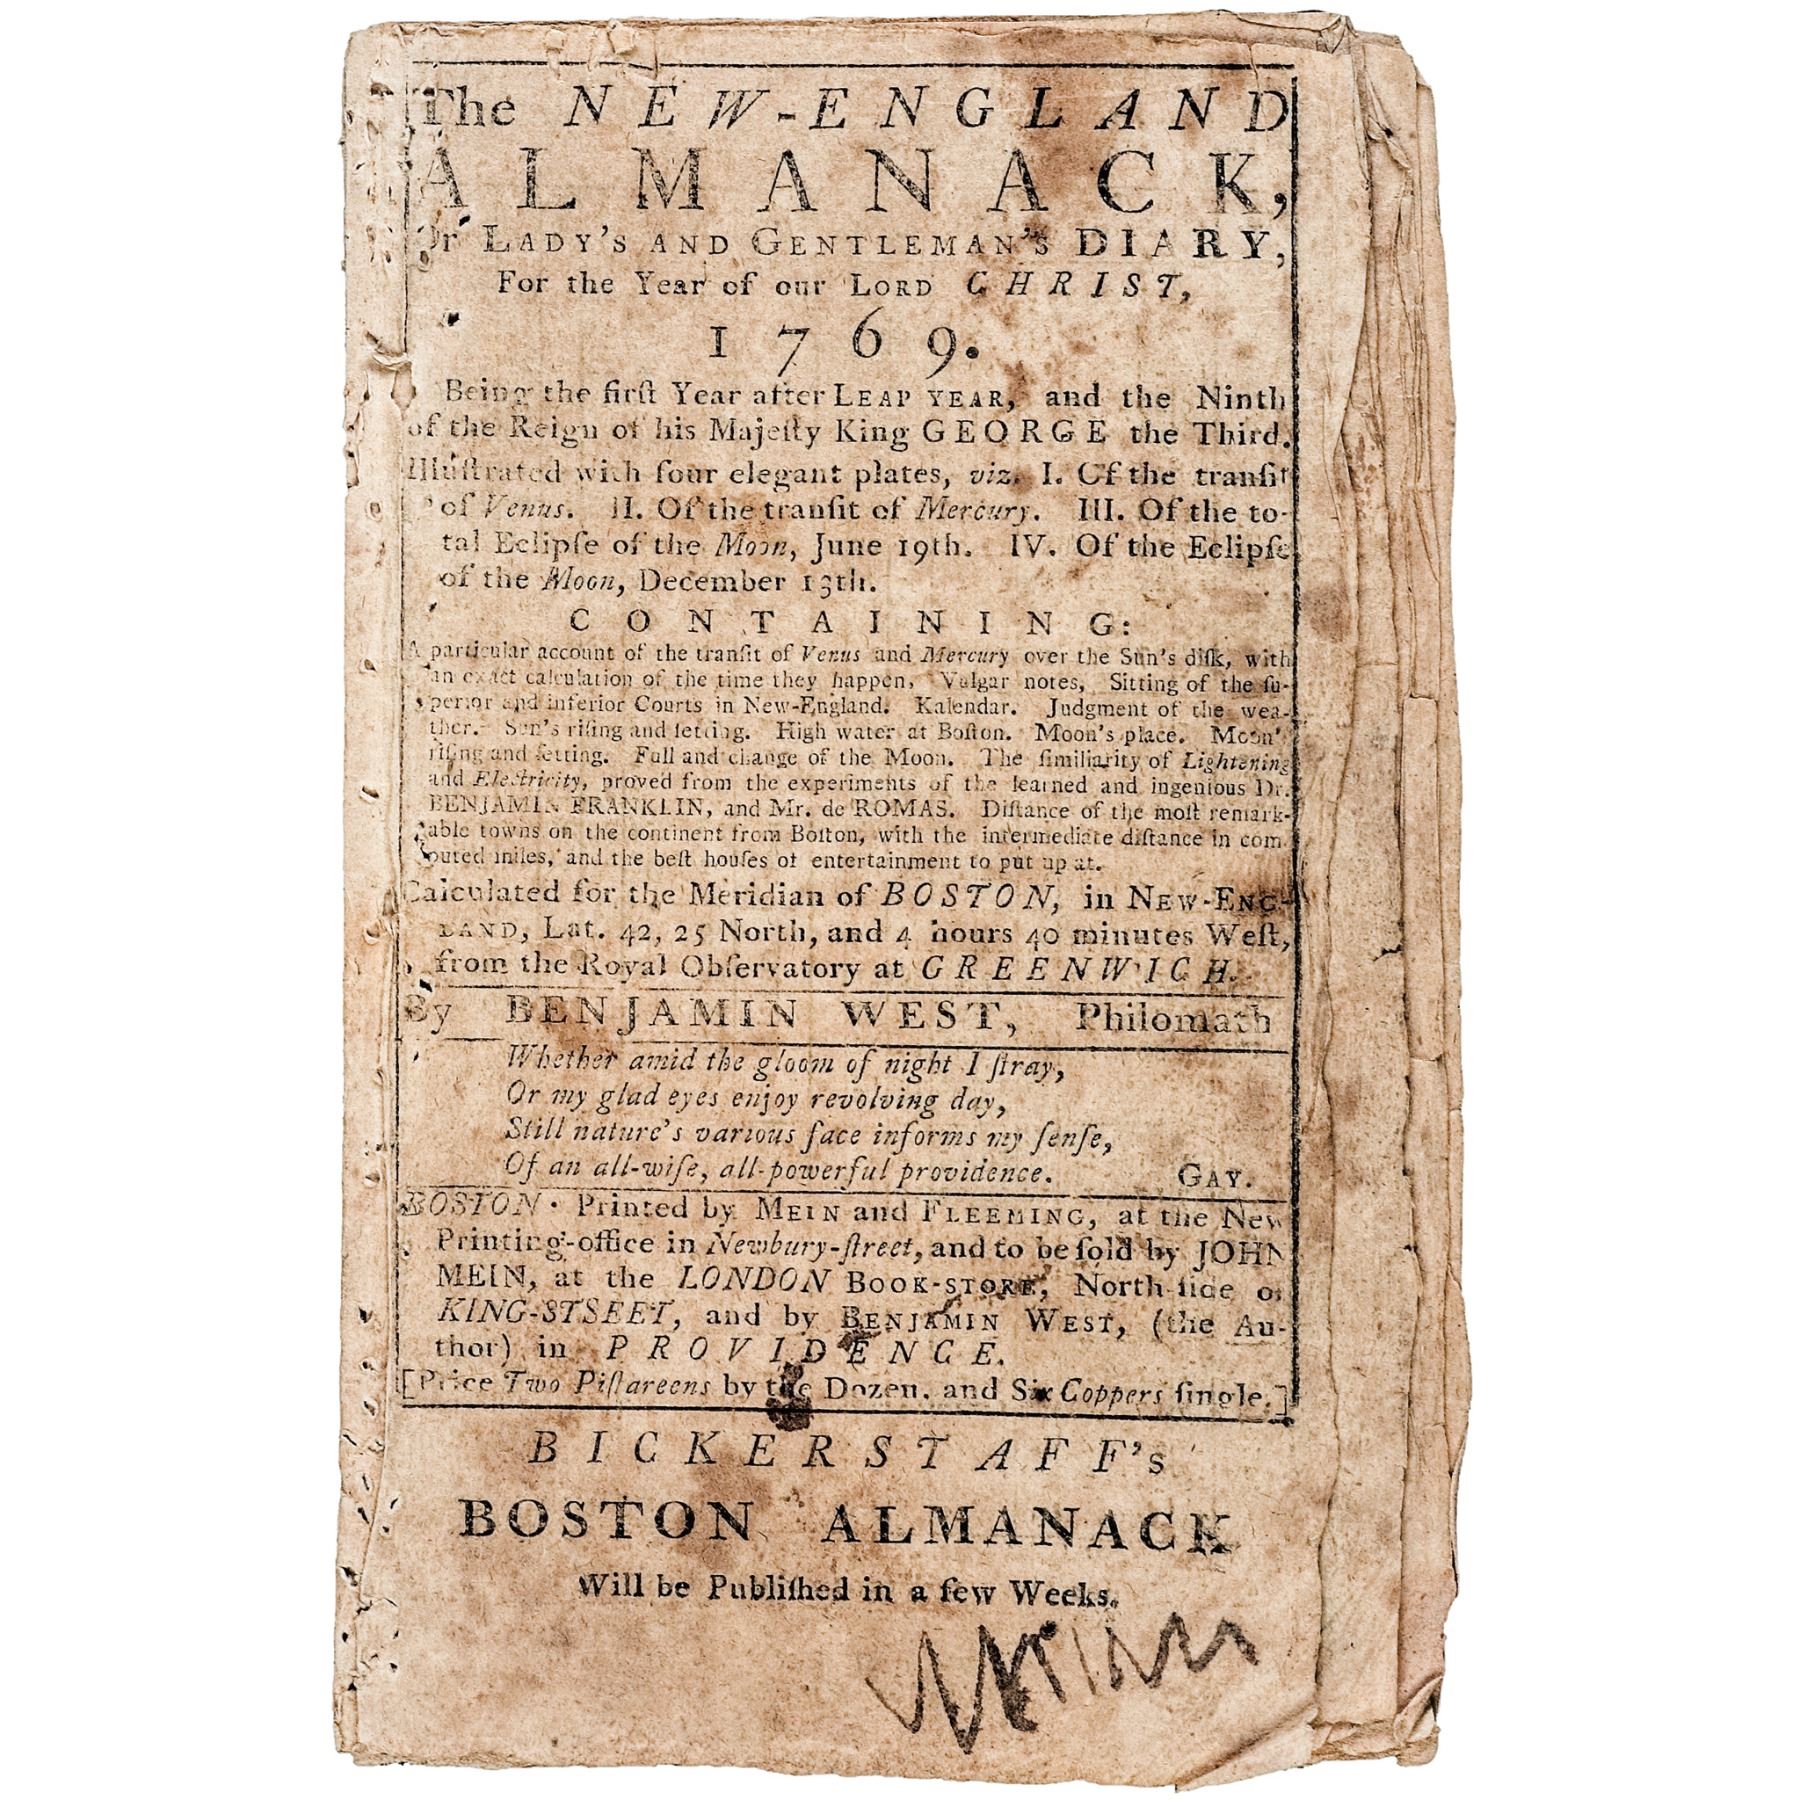 The NEW-ENGLAND
ALMANACK,
Or LADY'S AND GENTLEMAN'S DIARY,
For the Year of our LORD CHRIST,
1769.
Being the firſt Year after LEAP YEAR, and the Ninth
of the Reign of his Majeſty King GEORGE the Third.
Illuſtrated with four elegant plates, viz. I. Of the tranſit
of Venus. II. Of the tranſit of Mercury. III. Of the to-
tal Eclipſe of the Moon, June 19th. IV. Of the Eclipſe
of the Moon, December 13th.
CONTAINING:
A particular account of the tranſit of Venus and Mercury over the Sun's diſk, with
an exact calculation of the time they happen, Vulgar notes, Sitting of the ſu-
perior and inferior Courts in New-England. Kalendar. Judgment of the wea-
ther. Sun's riſing and ſetting. High water at Boſton. Moon's place. Moon'
riſing and ſetting. Full and change of the Moon. The ſimiliarity of Lightening
and Electricity, proved from the experiments of the learned and ingenious Dr.
BENJAMIN FRANKLIN, and Mr. de ROMAS. Diſtance of the moſt remark-
able towns on the continent from Boſton, with the intermediate diſtance in com-
puted miles, and the beſt houſes of entertainment to put up at.
Calculated for the Meridian of BOSTON, in NEW-ENG-
LAND, Lat. 42, 25 North, and 4 hours 40 minutes Weſt,
from the Royal Obſervatory at GREENWICH.
By BENJAMIN WEST, Philomath
Whether amid the gloom of night I ſtray,
Or my glad eyes enjoy revolving day,
Still nature's various face informs my ſenſe,
Of an all-wiſe, all-powerful providence. GAY.
BOSTON. Printed by MEIN and FLEEMING, at the New
Printing-office in Newbury-ſtreet, and to be ſold by JOHN
MEIN, at the LONDON BOOK-STORE, North-ſide of
KING-STSEET, and by BENJAMIN WEST, (the Au-
thor) in PROVIDENCE.
[Price Two Piſtareens by the Dozen, and Six Coppers ſingle.]
BICKERSTAFF's
BOSTON ALMANACK
Will be Publiſhed in a few Weeks.